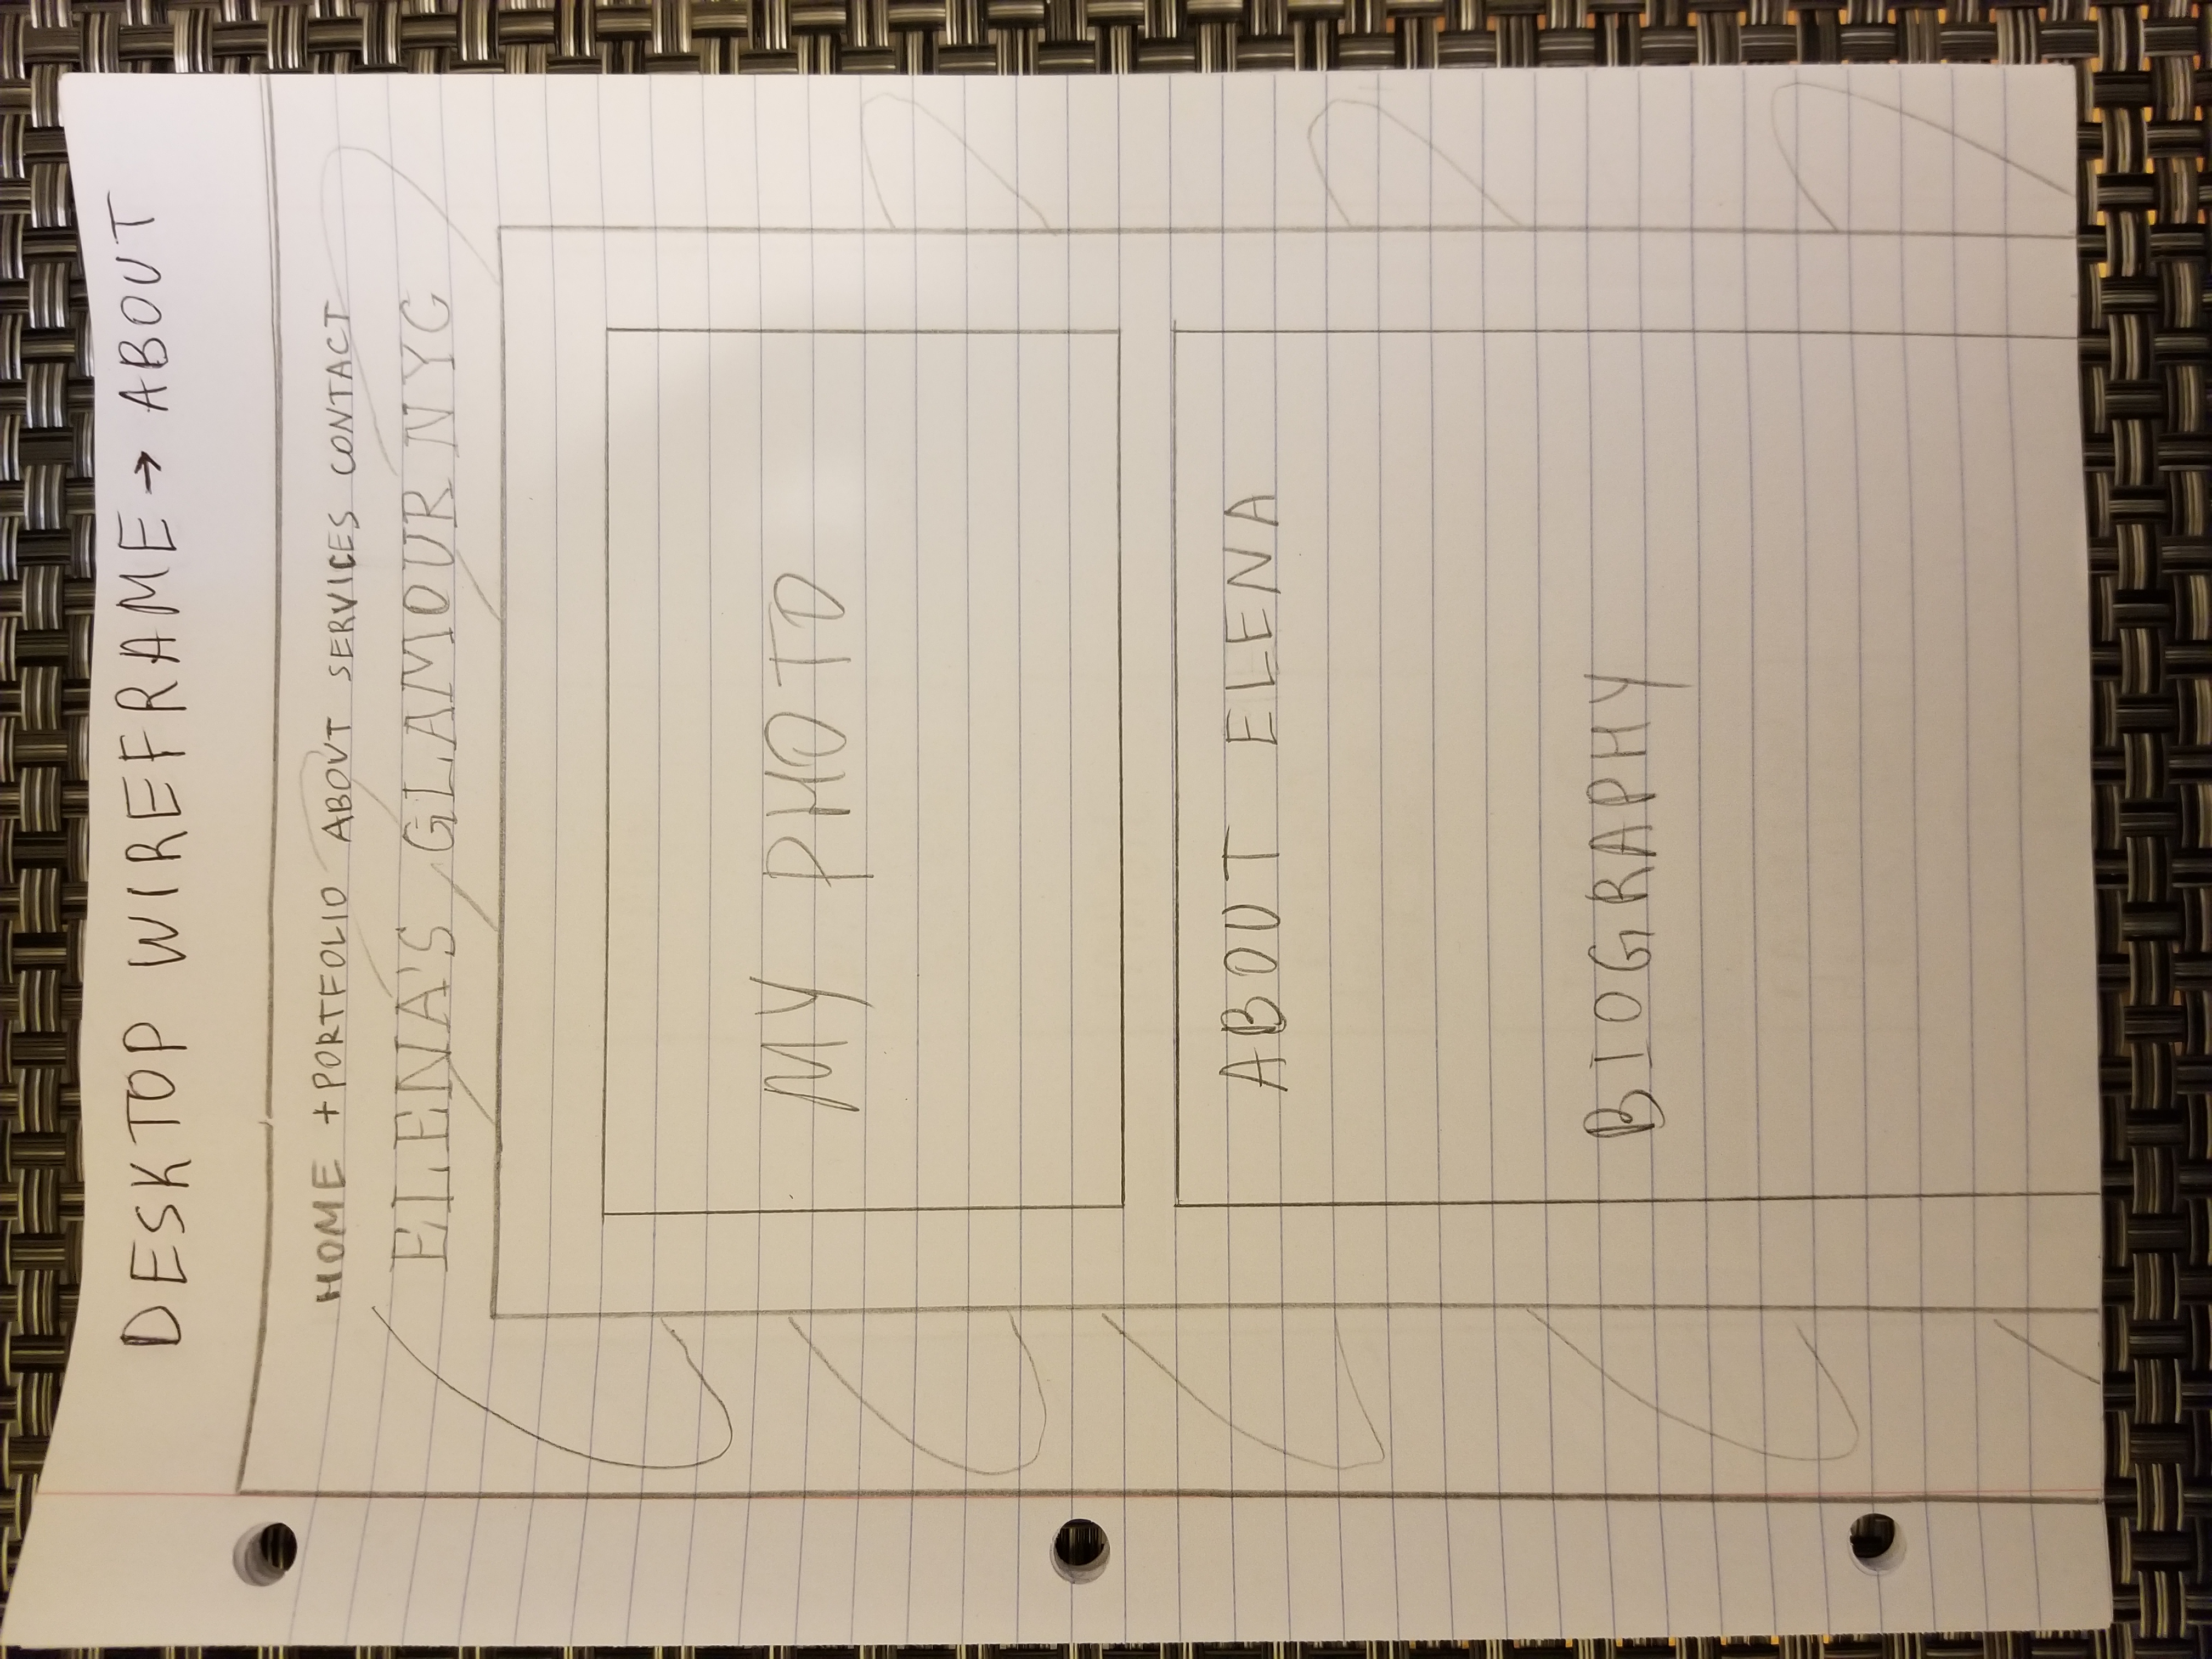 DESKTOP WIREFRAME → ABOUT
HOME +PORTFOLIO ABOUT SERVICES CONTACT
ELENA'S GLAMOUR NYC
MY PHOTO
ABOUT ELENA
BIOGRAPHY